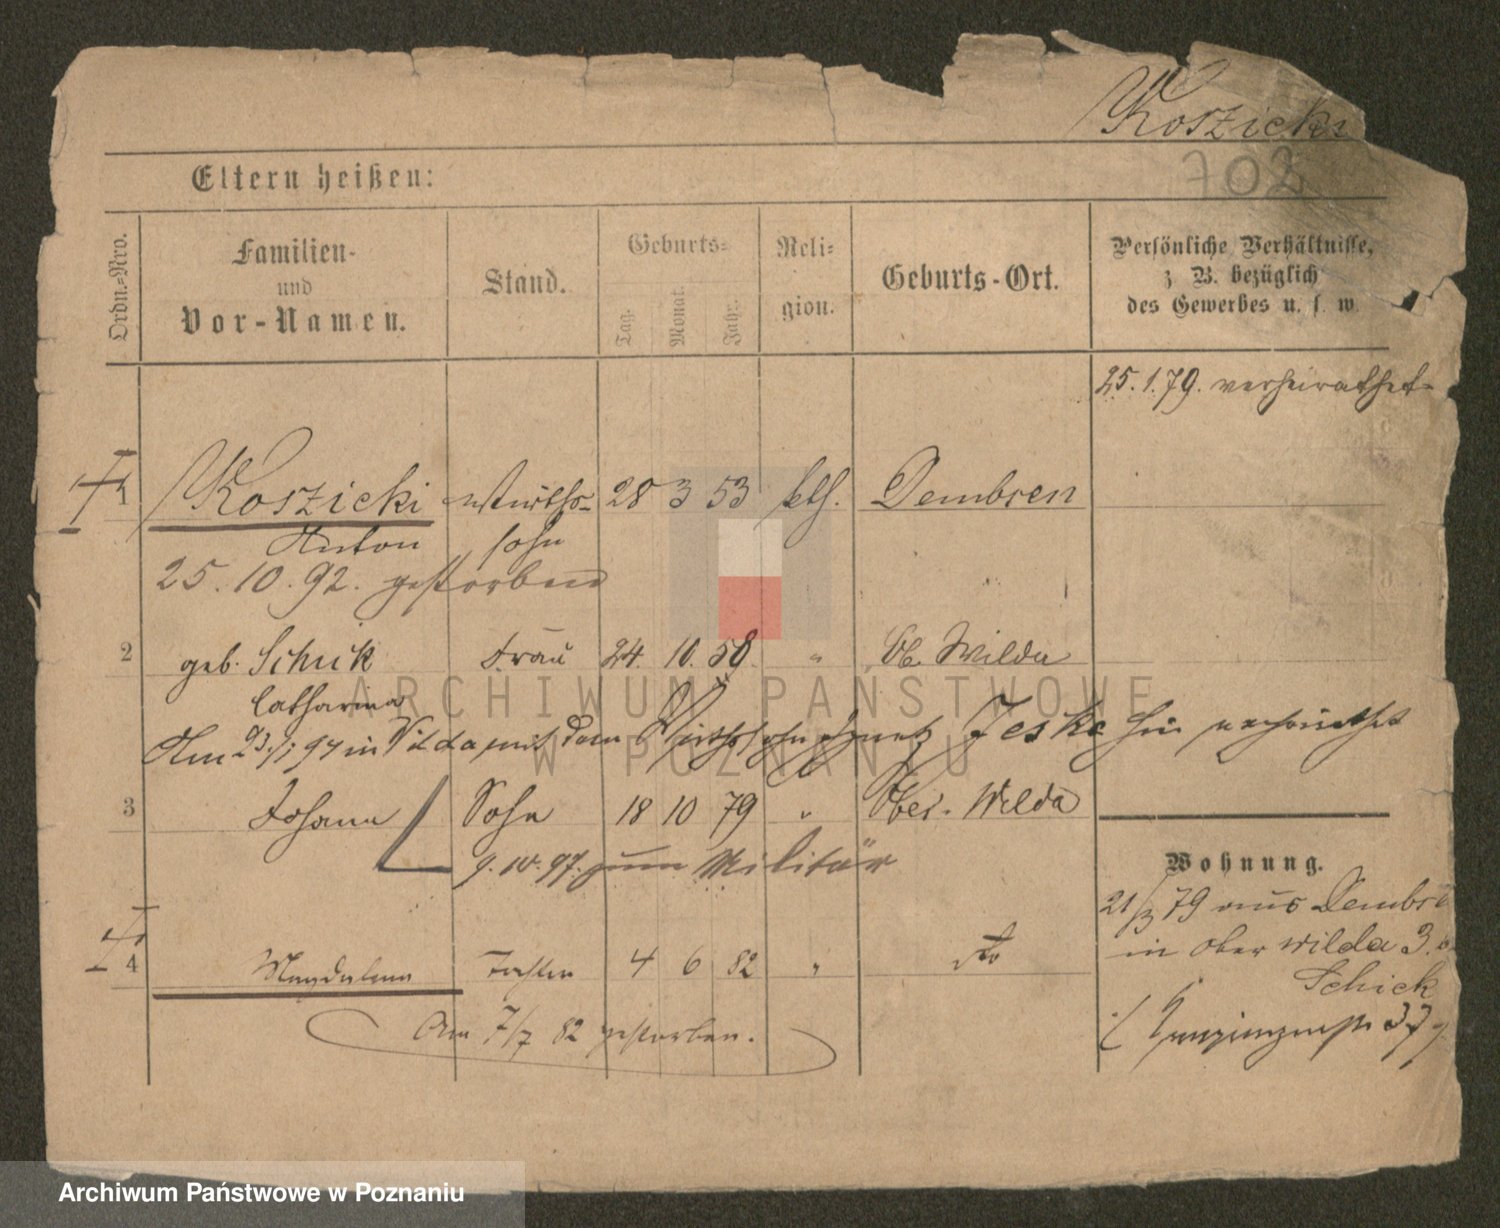 Koszicki
702
Eltern heißen:
Ordn.-Nro.
Familien-
und
Vor-Namen.
Stand.
Geburts-
Tag.
Monat.
Jahr.
Reli-
gion.
Geburts-Ort.
Persönliche Verhältnisse,
z. B. bezüglich
des Gewerbes u. s. w.
25.1.79. verheirathet
1 Koszicki Wirths- 28 3 53 kth. Dembsen
Anton sohn
25.10.92. gestorben
2 geb. Schuk Frau 24. 10. 58. " Ob. Wilda
Catharina
Am 23./1 94 in Wilda mit dem Wirthssohn Ignatz Jeske hier verheirathet
3 Johann Sohn 18 10 79 " Ober-Wilda
9.10.97. zum Militär
Wohnung.
21/3 79 aus Dembse
in Ober Wilda 3. b
Schick
4 Magdalena Tochter 4 6 82 " do
Am 7/7 82 gestorben.
37
ARCHIWUM PAŃSTWOWE
W POZNANIU
Archiwum Państwowe w Poznaniu